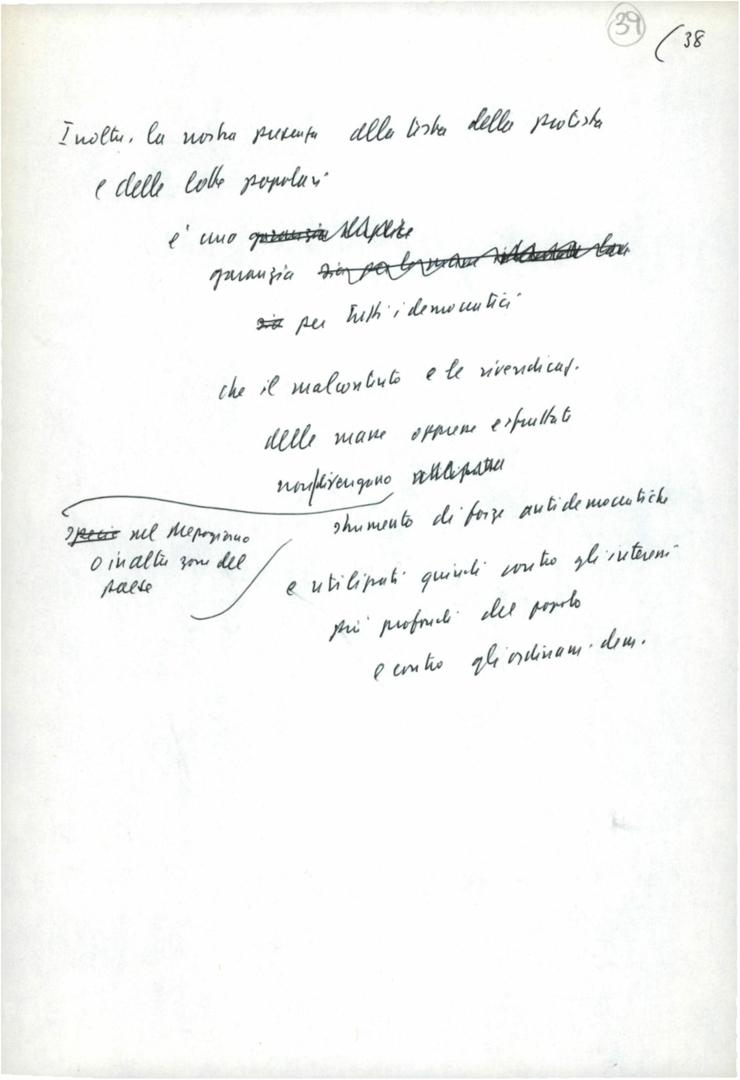 39
(38
Inoltre, la nostra presenza alla testa della protesta
e delle lotte popolari
è una
garanzia
per tutti i democratici
che il malcontento e le rivendicaz.
delle masse oppresse e sfruttate
non divengano
specie nel Mezzogiorno
o in altre zone del
paese
strumento di forze antidemocratiche
e utilizzati quindi contro gli interessi
più profondi del popolo
e contro gli ordinam. dem.